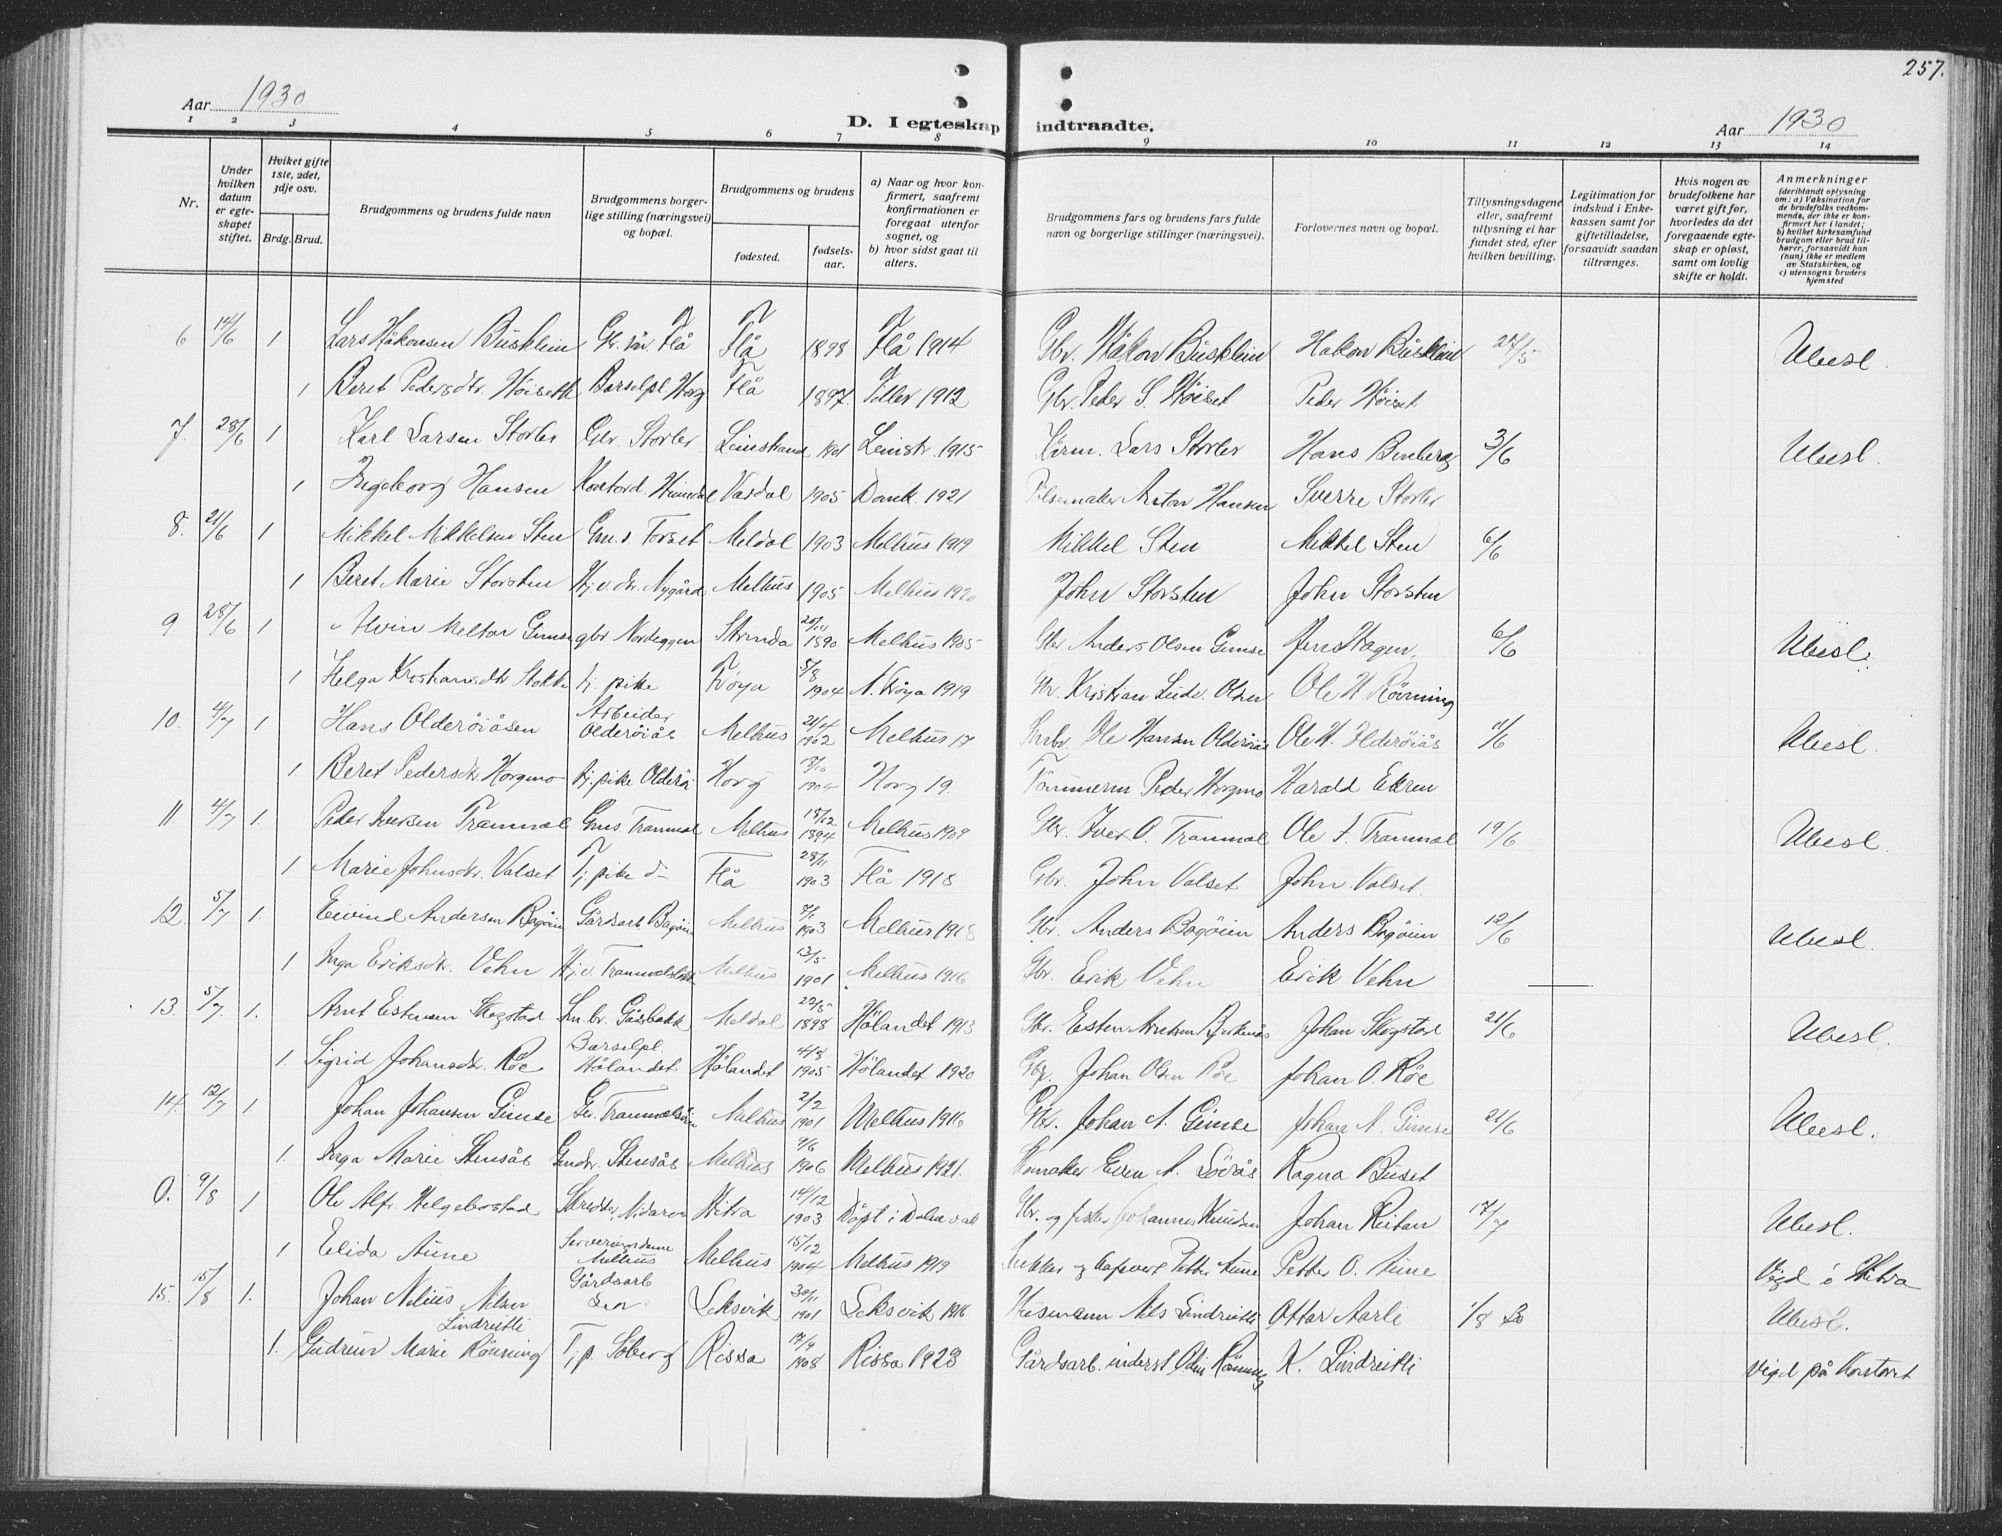 257.
Aar 1930
D. I egteskap indtraadte.
Aar 1930
1 2 3 4 5 6 7 8 9 10 11 12 13 14
Nr.
Under hvilken datum er egteskapet stiftet.
Hviket gifte 1ste, 2det, 3dje osv.
Brdg. Brud.
Brudgommens og brudens fulde navn
Brudgommens borgerlige stilling (næringsvei) og bopæl.
Brudgommens og brudens
fødested. fødselsaar.
a) Naar og hvor konfirmert, saafremt konfirmationen er foregaat utenfor sognet, og
b) hvor sidst gaat til alters.
Brudgommens fars og brudens fars fulde navn og borgerlige stillinger (næringsvei).
Forlovernes navn og bopæl.
Tillysningsdagene eller, saafremt tillysning ei har fundet sted, efter hvilken bevilling.
Legitimation for indskud i Enkekassen samt for giftetilladelse, forsaavidt saadan tiltrænges.
Hvis nogen av brudefolkene har været gift før, hvorledes da det foregaaende egteskap er opløst, samt om lovlig skifte er holdt.
Anmerkninger (deriblandt oplysning om: a) Vaksination for de brudefolks vedkommende, der ikke er konfirmert her i landet; b) hvilket kirkesamfund brudgom eller brud tilhører, forsaavidt han (nun) ikke er medlem av Statskirken, og c) utensogns bruders hjemsted
6 14/6 1 Lars Håkonsen Busklein Flå Flå 1898 Flå 1914 Gbr. Håkon Busklein Hakon Busklein 27/5 Ubesl.
1 Beret Pedersdtr Höiseth Barselpl. Horg Flå 1897. Tiller 1912 Gbr. Peder S. Höiset Peder Höiset
7. 28/6 1 Karl Larsen Storler Gbr. Storler Leinstrand 1901 Leinstr. 1915 Lars Storler Hans Benberg 3/6 Ubesl.
1 Ingeborg Hansen Kontord. Heimdal Værdal 1905 Domk. 1921 Pølsemaker Anton Hansen Sverre Storler
8. 21/6 1 Mikkel Mikkelsen Sten Gm.s. Forset Meldal 1903 Melhus 1919 Mikkel Sten Mikkel Sten 6/6
1 Beret Marie Storsten Hj.v. dr. Nygård Melhus 1905 Melhus 1920 John Storsten John Storsten
9 28/6 1 Alvin Melton Gimse gbr Nordeggen Strinda 20/10 1890 Melhus 1905 Gbr. Anders Olsen Gimse Jens Hagen 6/6 Ubesl.
1 Helga Kristiansdtr Stokke tj. pike Fröya 5/8 1904 N. Fröya 1919 Gbr. Kristian Ludv. Olsen Ole H. Rönning
10. 4/7 1 Hans Olderöiåsen Arbeider Olderöiås Melhus 21/4 1902 Melhus 17 Ole Hansen Olderöiås Ole H. Olderöiås 11/6 Ubesl.
1 Beret Pedersdtr. Horgmo tj. pike Olderöi Horg 18/10 1904 Horg 19. Tömmerm Peder Horgmo Harald Ekren
11 4/7 1. Peder Iversen Tranmæl Gms. Tranmæl Melhus 18/12 1894 Melhus 1909 Gbr. Iver O. Tranmæl Ole I. Tranmæl 19/6 Ubesl.
1 Marie Johnsdtr. Valset Tj. pike do Flå 28/11 1903 Flå 1918 Gbr. John Valset John Valset.
12. 5/7 1. Eivind Andersen Bagöien Gårdsarb Bagöien Melhus 7/1 1903 Melhus 1918 Gbr. Anders Bagöien Anders Bagöien 12/6 Ubesl.
1 Inga Eriksdtr. Vehn Hj.v. Tranmælsbakk Melhus 13/5 1901 Melhus 1916 Gbr. Erik Vehn Erik Vehn
13. 5/7. 1. Arnt Estensen Skogstad Gåsbakk Meldal 22/5 1898 Hölandet 1913 Gbr. Esten Arntsen Johan Skogstad 21/6 Ubesl.
1. Sigrid Johansdtr. Röe Barselpl. Hölandet Hölandet 4/8 1905 Hölandet 1920 Gbr. Johan Olsen Röe Johan O. Röe
14. 12/7 1. Johan Johansen Gimse Melhus 2/2 1901 Melhus 1916 Gbr. Johan A. Gimse Johan A. Gimse 21/6 Ubesl.
1. Inga Marie Stensås Stensås Melhus 9/6 1906 Melhus 1921. Skomaker Even A. Lövås Ragna Buset
0. 9/8 1 Ole Alf Helgebostad Skredder, Nidaros Hitra 14/12 1903 Döpt i Dolm Gbr. og fisker Johannes Knudsen Johan Reitan 17/7 Ubesl.
1 Elida Aune Serveringsdame Melhus Melhus 15/12 1904 Melhus 1919 Snekker og Petter Aune Petter O. Aune Vigd i Hitra
15. 15/8 1. Johan Nelius Nelsen Lindseitli Gårdsarb Leksvik 30/11 1901 Leksvik 1916 Husmann Nels Lindseitli Ottar Aarli 1/8 Ubesl.
1. Gudrun Marie Rönning Tj. p. Söberg Rissa 17/9 1908 Rissa 1923 Gårdsarb. inderst Odin Rönning K. Lindseitli Vigd på Kontoret